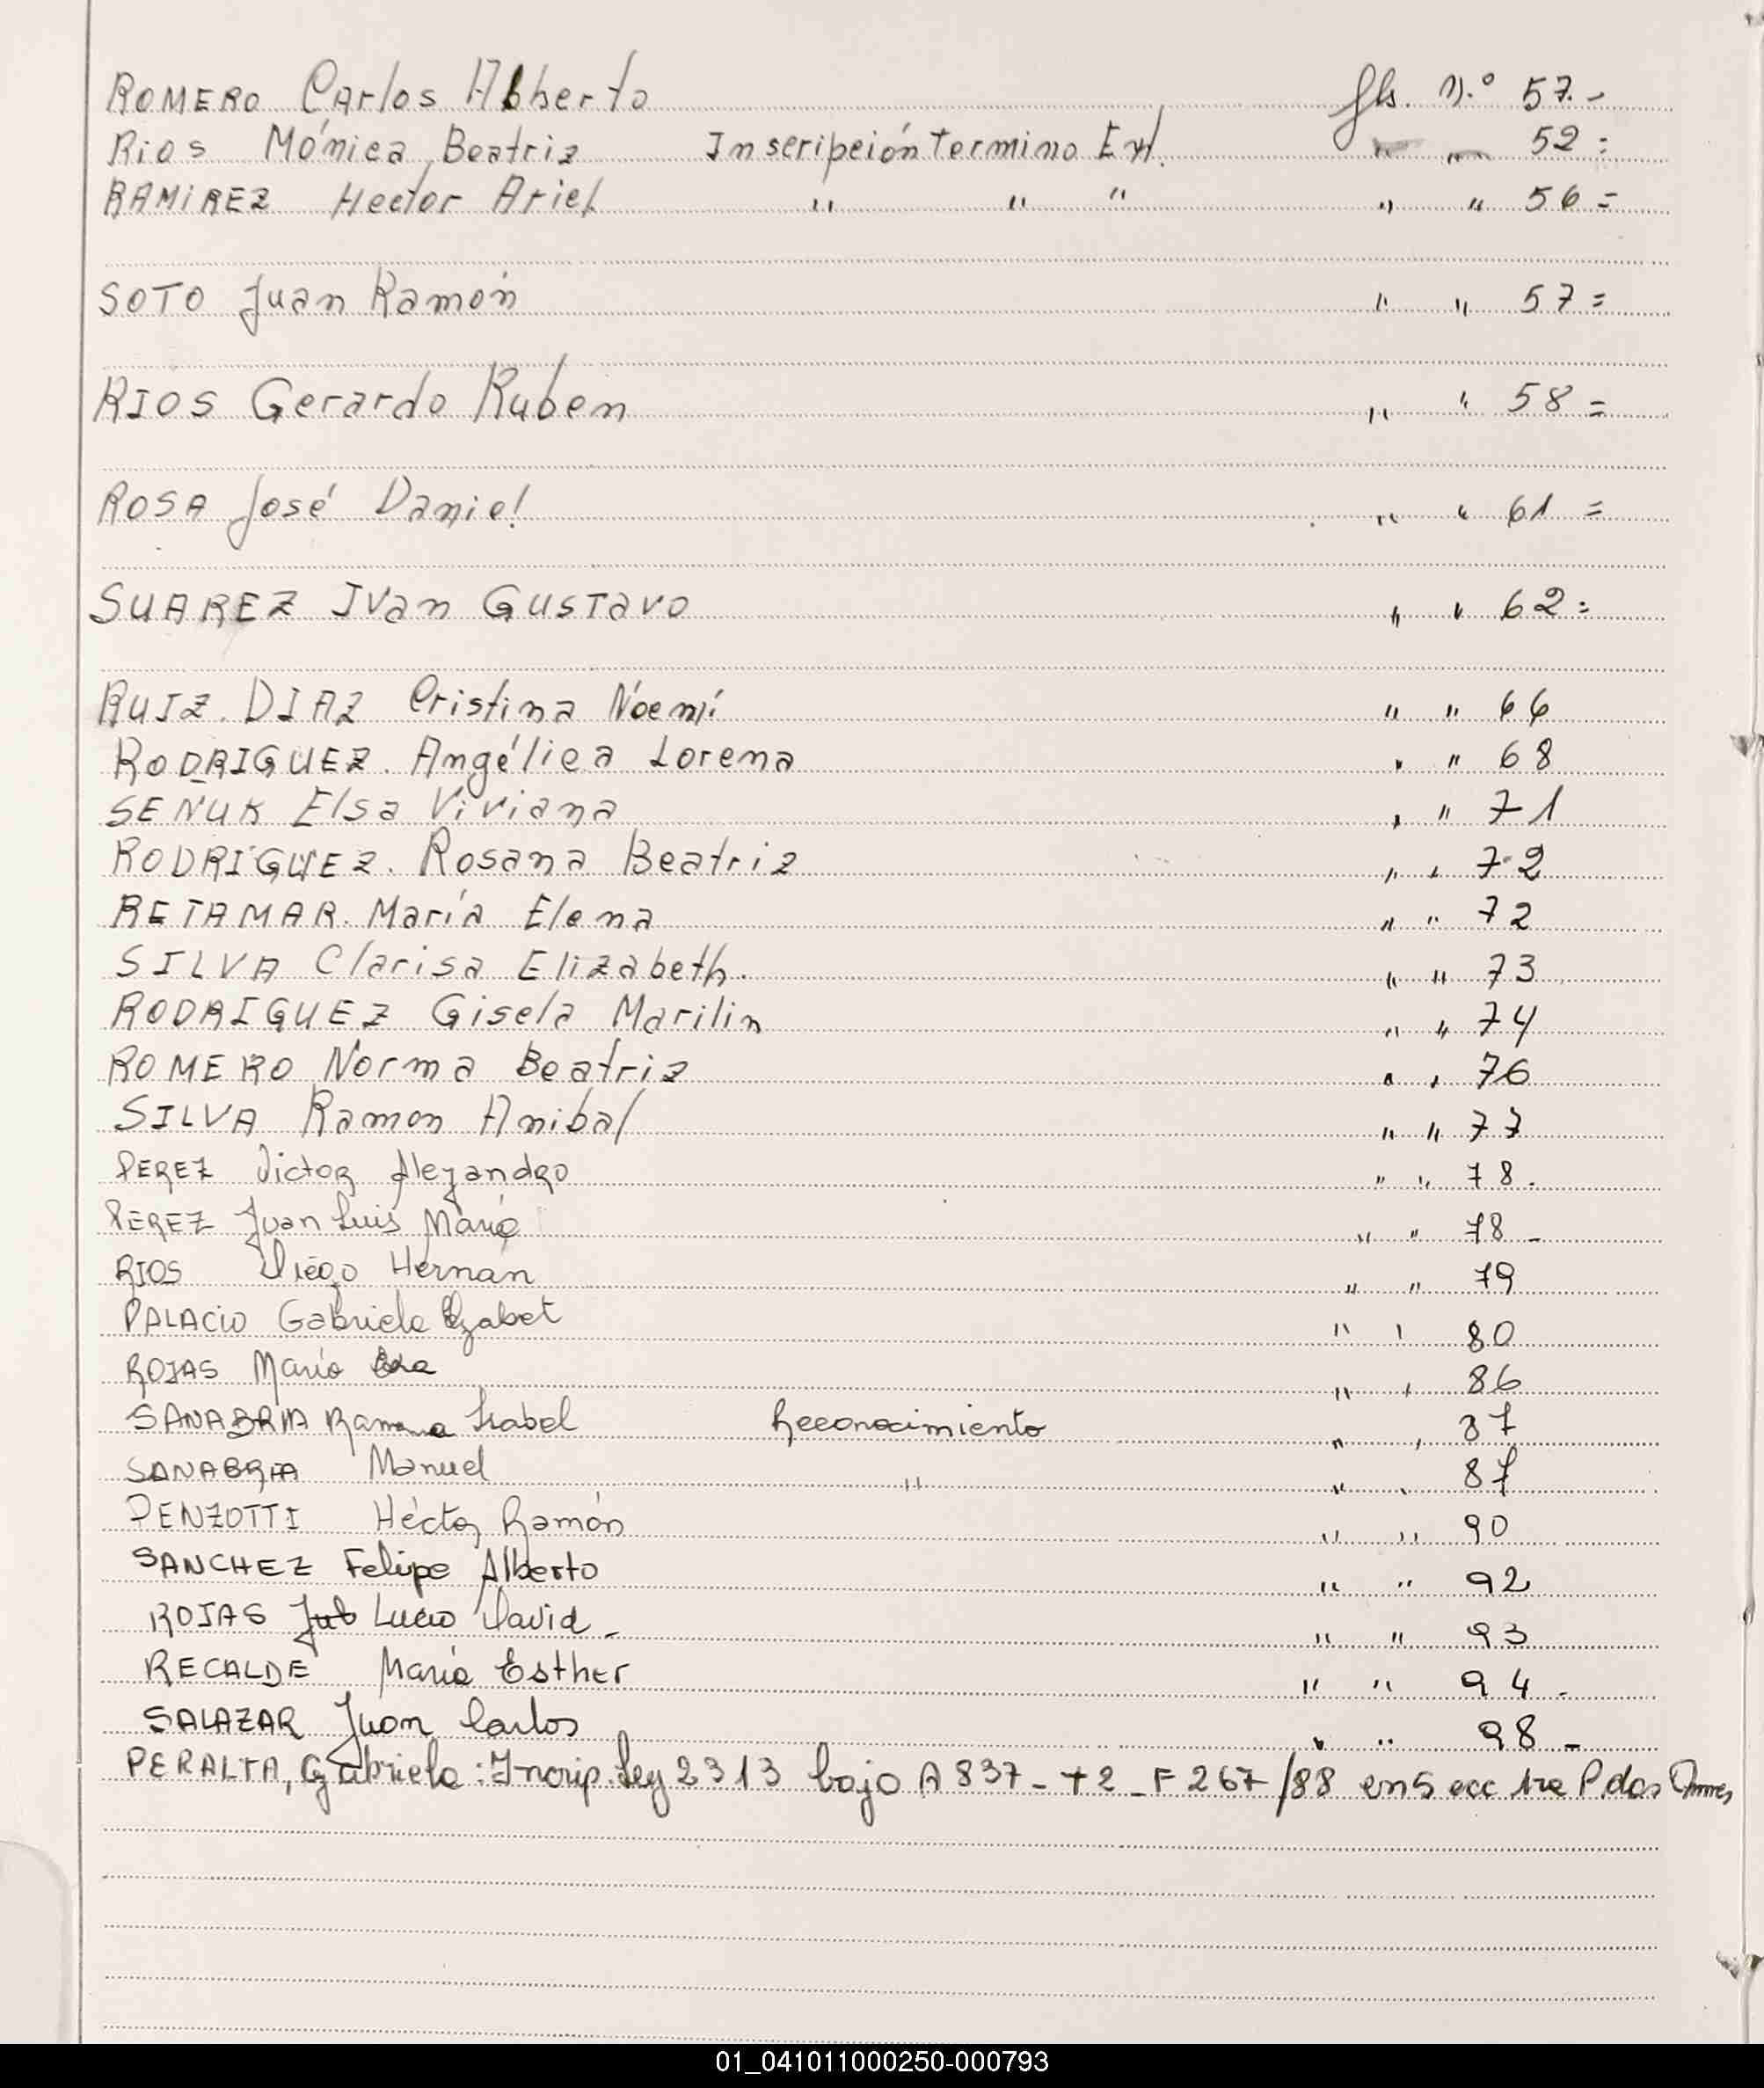 ROMERO Carlos Alberto fls. N.º 57.-
Rios Mónica Beatriz Inscripción Termino Ext. " " 52=
RAMIREZ Hector Ariel " " " " " 56=
SOTO Juan Ramón " " 57=
RIOS Gerardo Ruben " " 58=
ROSA José Daniel " " 61=
SUAREZ Ivan Gustavo " " 62=
RUIZ. DIAZ Cristina Noemí " " 66
RODRIGUEZ. Angélica Lorena " " 68
SEÑUK Elsa Viviana " " 71
RODRIGUEZ. Rosana Beatriz " " 72
RETAMAR. María Elena " " 72
SILVA Clarisa Elizabeth. " " 73
RODRIGUEZ Gisela Marilin " " 74
ROMERO Norma Beatriz " " 76
SILVA Ramon Anibal " " 77
PEREZ Victor Alejandro " " 78.
PEREZ Juan Luis Mario " " 78-
RIOS Diego Hernan " " 79
PALACIO Gabriela Elizabet " " 80
ROJAS María " " 86
SANABRIA Ramona Isabel Reconocimiento " " 87
SANABRIA Manuel " " " 87
PENZOTTI Héctor Ramón " " 90
SANCHEZ Felipe Alberto " " 92
ROJAS Lucio David- " " 93
RECALDE María Esther " " 94-
SALAZAR Juan Carlos " " 98-
PERALTA, Gabriela: Inscrip. Ley 2313 bajo A 837- t2-F 267/88 en Secc 1ra P. dos
01_041011000250-000793